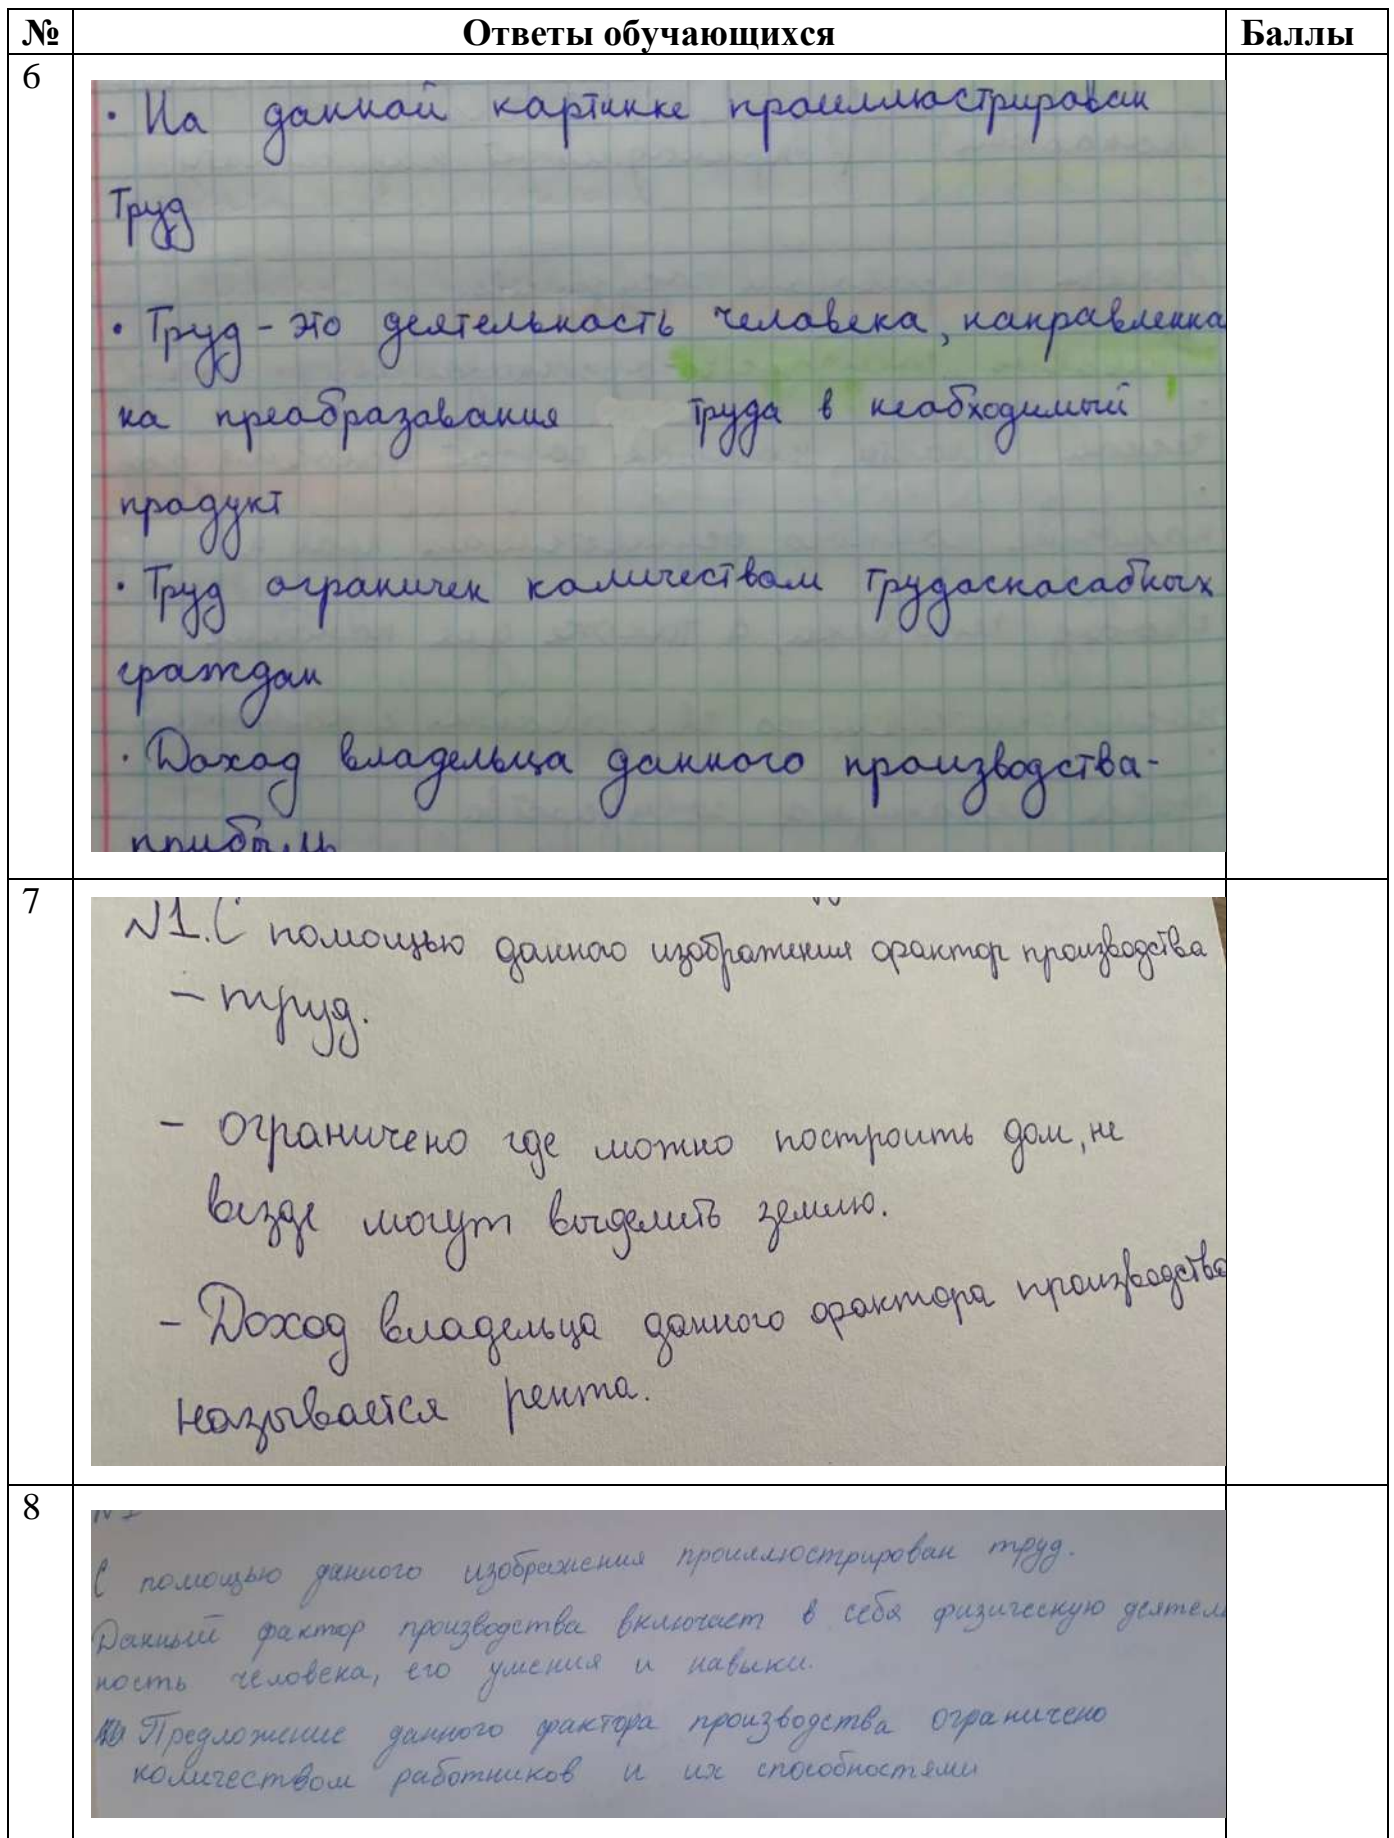 № Ответы обучающихся Баллы
6
• На данной картинке проиллюстрирован
Труд
• Труд - это деятельность человека, направленна
на преобразования труда в необходимый
продукт
• Труд ограничен количеством трудоспасабных
граждан
• Доход владельца данного производства-
прибыль
7
№1. С помощью данного изображения фактор производства
– труд.
– ограничено где можно построить дом, не
везде могут выделить землю.
– Доход владельца данного фактора производства
называется рента.
8
С помощью данного изображения проиллюстрирован труд.
Данный фактор производства включает в себя физическую деятель
ность человека, его умения и навыки.
Предложение данного фактора производства ограничено
количеством работников и их способностями